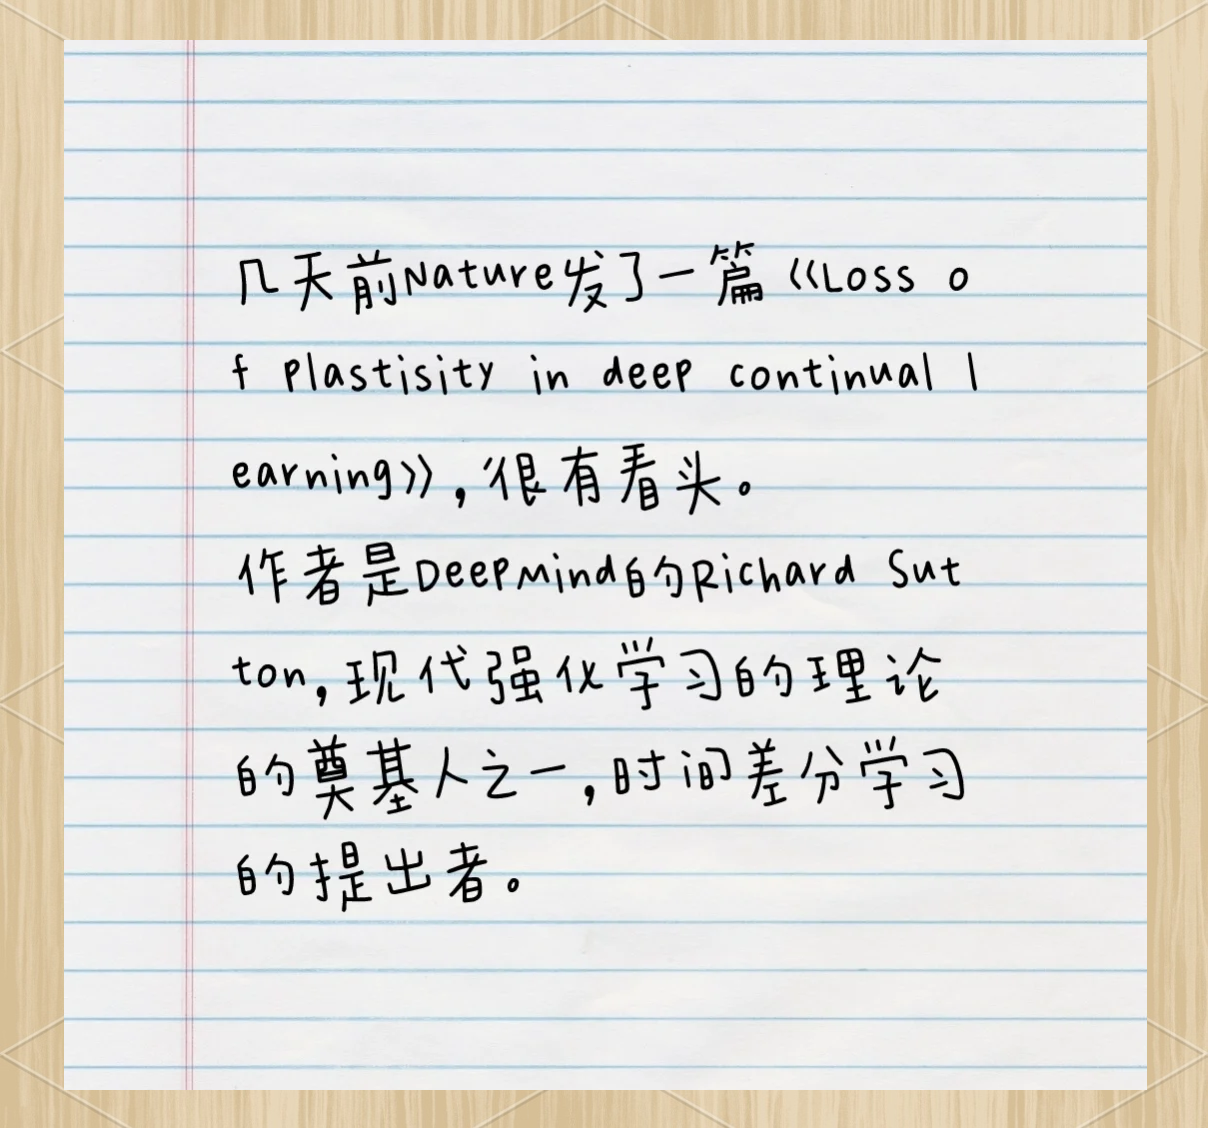 几天前Nature发了一篇《Loss o
f plastisity in deep continual l
earning》,很有看头。
作者是Deepmind的Richard Sut
ton,现代强化学习的理论
的奠基人之一,时间差分学习
的提出者。